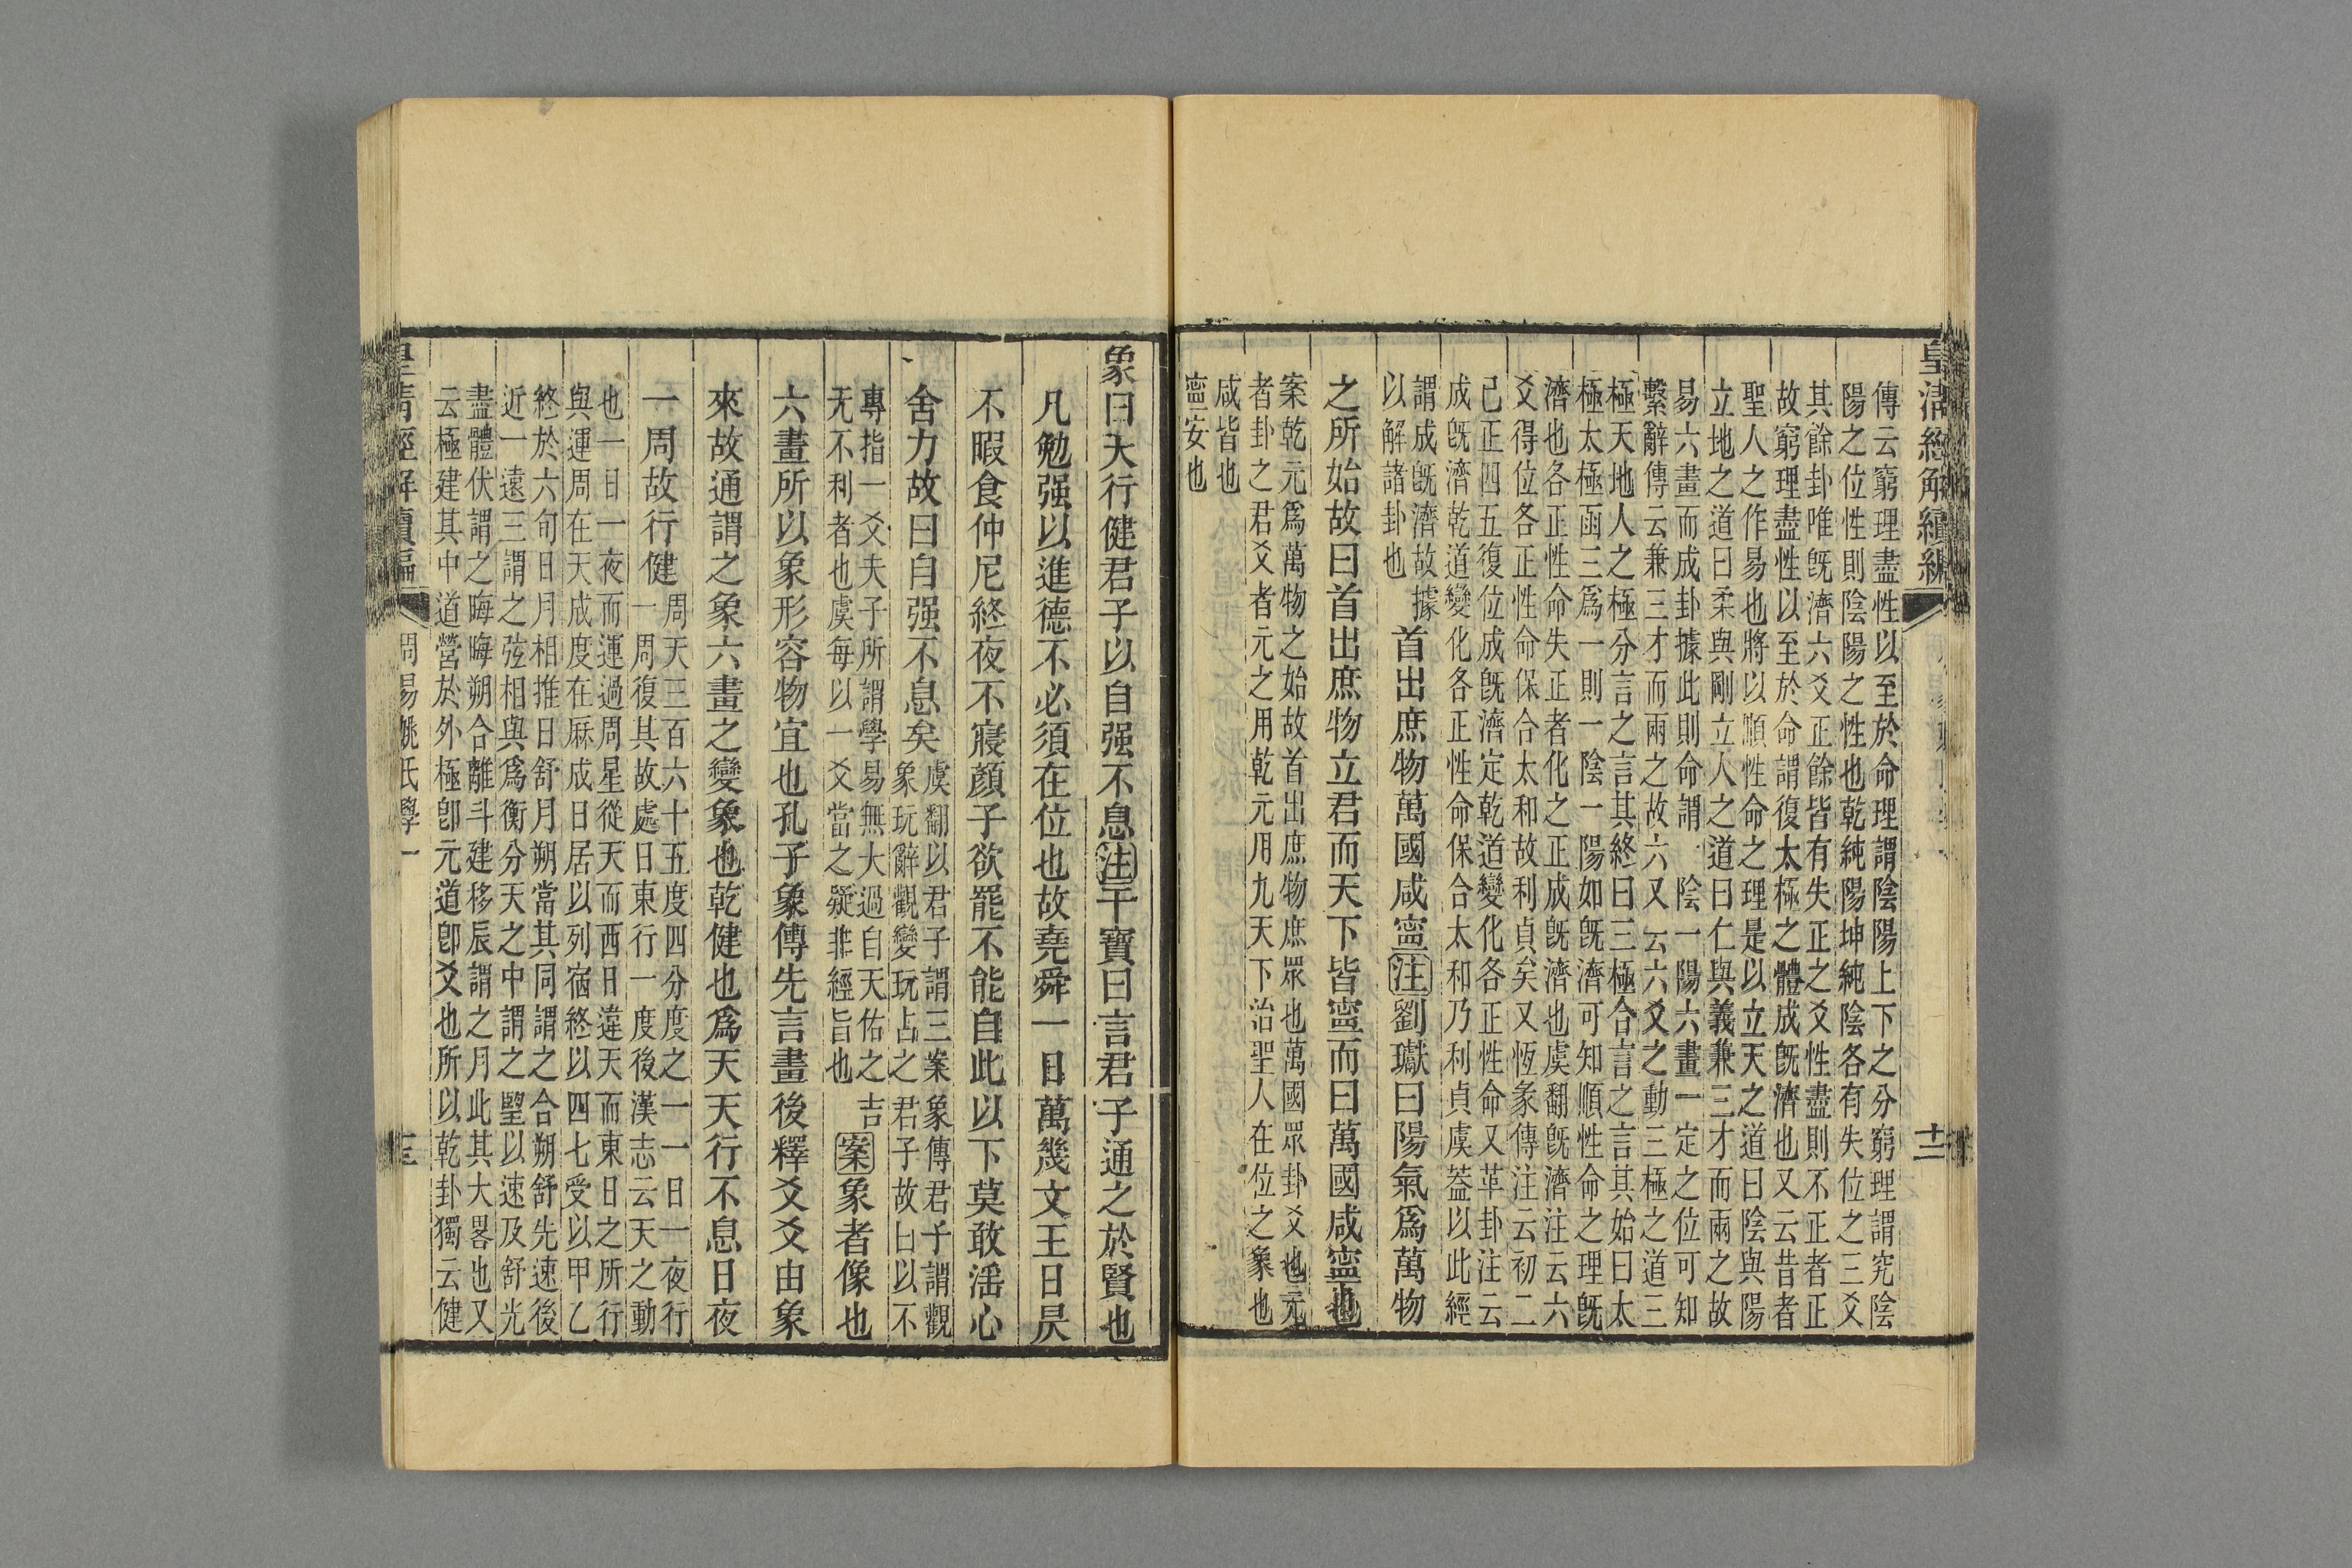 皇清經解續編
十二
傳云窮理盡性以至於命理謂陰陽上下之分窮理謂究陰
陽之位性則陰陽之性也乾純陽坤純陰各有失位之三爻
其餘卦唯旣濟六爻正餘皆有失正之爻性盡則不正者正
故窮理盡性以至於命謂復太極之體成旣濟也又云昔者
聖人之作易也將以順性命之理是以立天之道曰陰與陽
立地之道曰柔與剛立人之道曰仁與義兼三才而兩之故
易六畫而成卦據此則命謂一陰一陽六畫一定之位可知
繫辭傳云兼三才而兩之故六又云六爻之動三極之道三
極天地人之極分言之言其終曰三極合言之言其始曰太
極太極函三爲一則一陰一陽如旣濟可知順性命之理旣
濟也各正性命失正者化之正成旣濟也虞翻旣濟注云六
爻得位各正性命保合太和故利貞矣又恆彖傳注云初二
已正四五復位成旣濟定乾道變化各正性命又革卦注云
成旣濟乾道變化各正性命保合太和乃利貞虞葢以此經
謂成旣濟故據
以解諸卦也
首出庶物萬國咸寍注劉瓛曰陽氣爲萬物
之所始故曰首出庶物立君而天下皆寍而曰萬國咸寍也
案乾元爲萬物之始故首出庶物庶眾也萬國眾卦爻也元
者卦之君爻者元之用乾元用九天下治聖人在位之象也
咸皆也
寍安也
象曰天行健君子以自强不息注干寶曰言君子通之於賢也
凡勉强以進德不必須在位也故堯舜一日萬幾文王日昃
不暇食仲尼終夜不寢顏子欲罷不能自此以下莫敢滛心
舍力故曰自强不息矣
虞翻以君子謂三案象傳君子謂觀
象玩辭觀變玩占之君子故曰以不
專指一爻夫子所謂學易無大過自天佑之吉
无不利者也虞每以一爻當之疑非經旨也
案象者像也
六畫所以象形容物宜也孔子象傳先言畫後釋爻爻由象
來故通謂之象六畫之變象也乾健也爲天天行不息日夜
一周故行健
周天三百六十五度四分度之一一日一夜行
一周復其故處日東行一度後漢志云天之動
也一日一夜而運過周星從天而西日違天而東日之所行
與運周在天成度在厤成日居以列宿終以四七受以甲乙
終於六旬日月相推日舒月朔當其同謂之合朔舒先速後
近一遠三謂之弦相與爲衡分天之中謂之朢以速及舒光
盡體伏謂之晦晦朔合離斗建移辰謂之月此其大畧也又
云極建其中道營於外極卽元道卽爻也所以乾卦獨云健
皇清經解續編
周易姚氏學一
十三